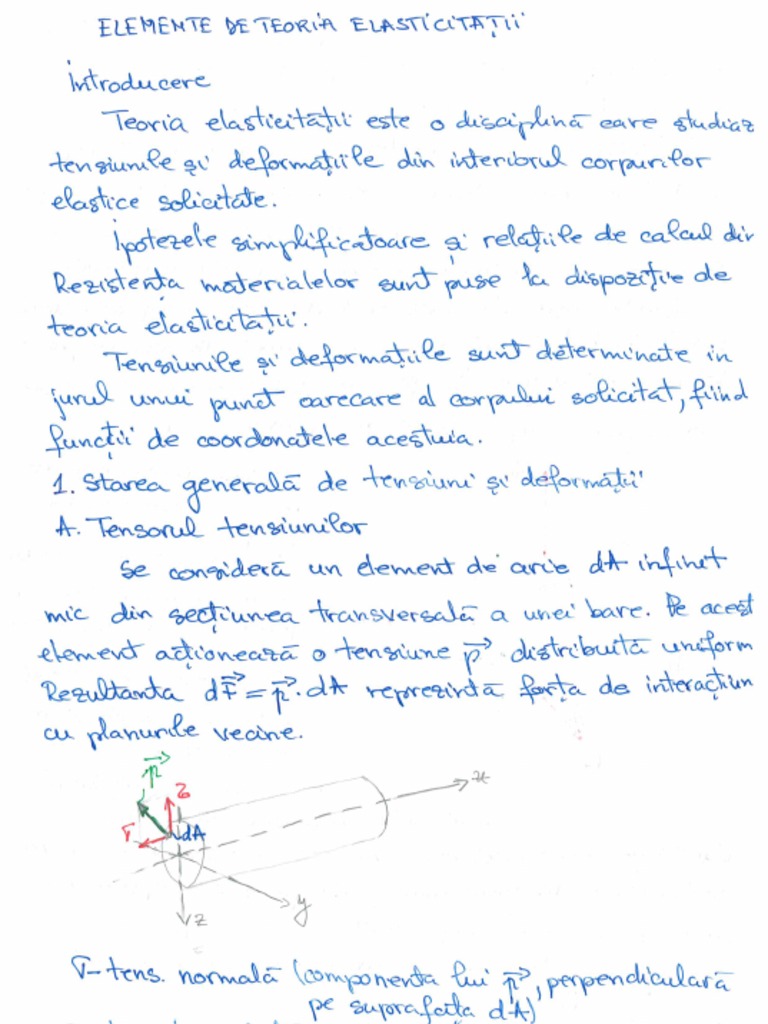 ELEMENTE DE TEORIA ELASTICITĂȚII
Introducere
Teoria elasticității este o disciplină care studiaz
tensiunile și deformațiile din interiorul corpurilor
elastice solicitate.
Ipotezele simplificatoare și relațiile de calcul din
Rezistența materialelor sunt puse la dispoziție de
teoria elasticității.
Tensiunile și deformațiile sunt determinate în
jurul unui punct oarecare al corpului solicitat, fiind
funcții de coordonatele acestuia.
1. Starea generală de tensiuni și deformații
A. Tensorul tensiunilor
Se consideră un element de arie dA infinit
mic din secțiunea transversală a unei bare. Pe acest
element acționează o tensiune p⃗ distribuită uniform
Rezultanta dF⃗ = p⃗ · dA reprezintă forța de interacțiun
cu planurile vecine.
p⃗
τ
x
σ
dA
y
z
σ - tens. normală (componenta lui p⃗, perpendiculară
pe suprafața dA)